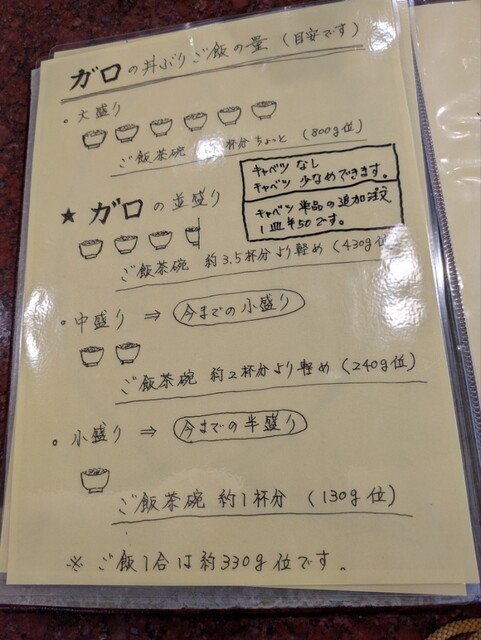 ガロの丼ぶりご飯の量 (目安です)
・大盛り
ご飯茶碗 杯分ちょっと (800g位)
キャベツ なし
キャベツ 少なめできます。
キャベツ 単品の追加注文
1皿¥50です。
★ ガロの並盛り
ご飯茶碗 約3.5杯分より軽め (430g位)
・中盛り ⇒ 今までの小盛り
ご飯茶碗 約2杯分より軽め (240g位)
・小盛り ⇒ 今までの半盛り
ご飯茶碗 約1杯分 (130g位)
※ ご飯1合は約330g位です。